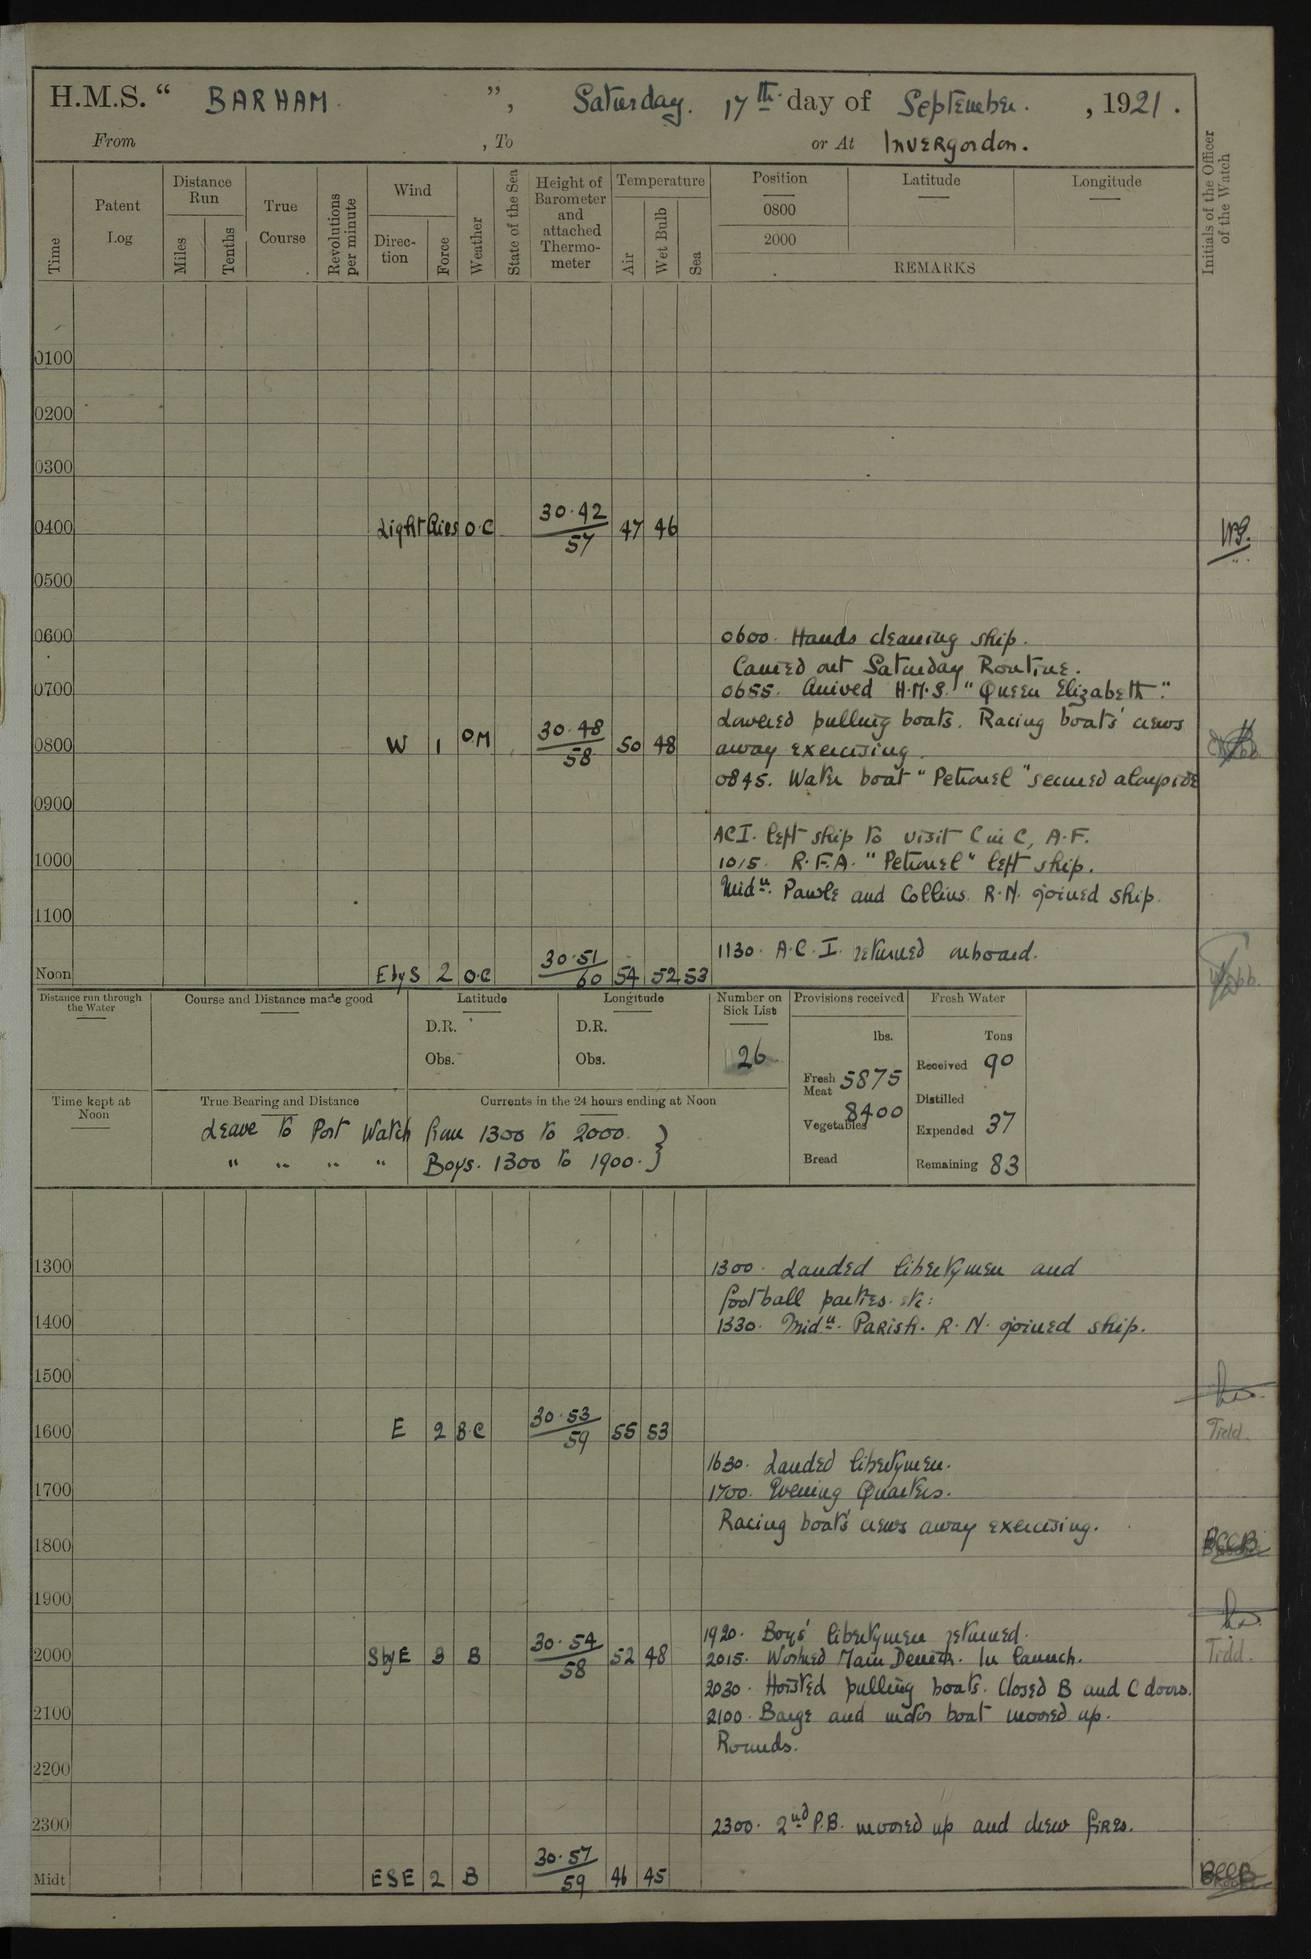 H.M.S. “ BARHAM. ”, Saturday. 17th day of September. , 1921.
From , To or At Invergordon.
Time
Patent Log
Distance Run
Miles
Tenths
True Course
Revolutions per minute
Wind
Direc-tion
Force
Weather
State of the Sea
Height of Barometer and attached Thermo-meter
Temperature
Air
Wet Bulb
Sea
Position
0800
2000
Latitude
Longitude
REMARKS
Initials of the Officer of the Watch
0100
0200
0300
0400 Light Airs O.C 30.42/57 47 46
0500
0600 0600. Hands cleaning ship.
Carried out Saturday Routine.
0700 0655. Arrived H.M.S. "Queen Elizabeth".
Lowered pulling boats. Racing boats' crews
0800 W 1 O.M 30.48/58 50 48 away exercising.
0845. Water boat "Petronel" secured alongside
0900
ACI. left ship to visit C in C, A.F.
1000 1015. R.F.A. "Petronel" left ship.
Midn. Pawle and Collins. R.N. joined ship.
1100
1130. A.C.I. returned onboard.
Noon E by S 2 O.C 30.51/60 54 52 53
Distance run through the Water
Course and Distance made good
Latitude
D.R.
Obs.
Longitude
D.R.
Obs.
Number on Sick List
26
Provisions received
lbs.
Fresh Meat 5875
Vegetables 8400
Bread
Fresh Water
Tons
Received 90
Distilled
Expended 37
Remaining 83
Time kept at Noon
True Bearing and Distance
Currents in the 24 hours ending at Noon
Leave to Port Watch from 1300 to 2000. }
" " " " Boys. 1300 to 1900. }
1300 1300. Landed libertymen and
football parties. etc:
1400 1330. Midn. Parish. R.N. joined ship.
1500
1600 E 2 B.C 30.53/59 55 53
1630. Landed libertymen.
1700 1700. Evening Quarters.
Racing boats' crews away exercising.
1800
1900
1920. Boys' libertymen returned.
2000 S by E 3 B 30.54/58 52 48 2015. Worked Main Derrick. In launch.
2030. Hoisted pulling boats. Closed B and C doors.
2100 2100. Barge and motor boat moored up.
Rounds.
2200
2300 2300. 2nd P.B. moored up and drew fires.
Midt ESE 2 B 30.57/59 46 45